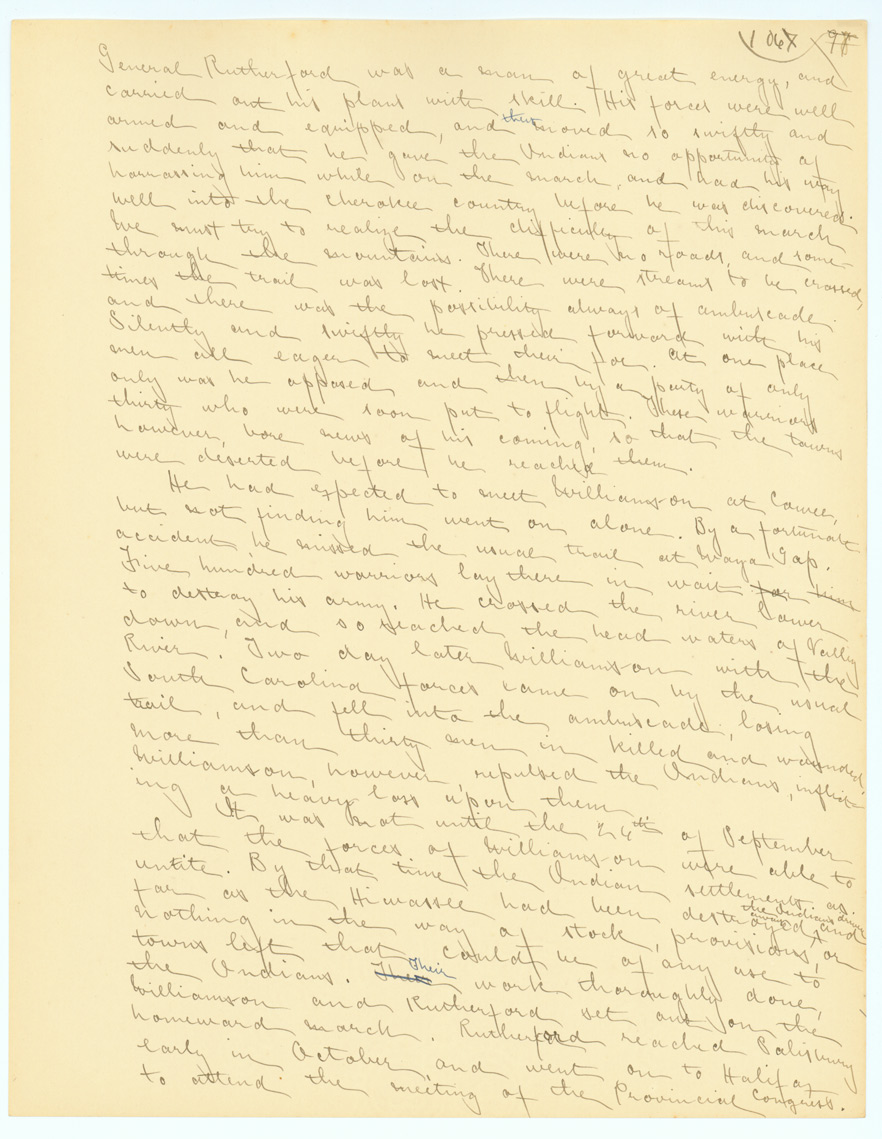 106X 98
General Rutherford was a man of great energy, and
carried out his plans with skill. His forces were well
armed and equipped, and they moved so swiftly and
suddenly that he gave the Indians no opportunity of
harrassing him while on the march, and had his way
well into the Cherokee country before he was discovered.
We must try to realize the difficulty of this march
through the mountains. There were no roads, and some-
times the trail was lost. There were streams to be crossed,
and there was the possibility always of ambuscade.
Silently and swiftly he pressed forward with his
men all eager to meet their foe. At one place
only was he opposed, and then by a party of only
thirty who were soon put to flight. These warriors
however, bore news of his coming, so that the towns
were deserted before he reached them.
He had expected to meet Williamson at Cowee,
but not finding him went on alone. By a fortunate
accident he missed the usual trail at Waya Gap.
Five hundred warriors lay there in wait for him
to destroy his army. He crossed the river lower
down, and so reached the head waters of Valley
River. Two day later Williamson with the
South Carolina forces came on by the usual
trail, and fell into the ambuscade, losing
more than thirty men in killed and wounded.
Williamson, however repulsed the Indians, inflict-
ing a heavy loss upon them.
It was not until the 26th of September
that the forces of Williamson were able to
untite. By that time the Indian settlements as
far as the Hiwassee had been destroyed, the Indians driven away and
nothing in the way of stock, provisions, or
towns left that could be of any use to
the Indians. Their work thoroughly done,
Williamson and Rutherford set out on the
homeward march. Rutherford reached Salisbury
early in October, and went on to Halifax
to attend the meeting of the Provincial Congress.